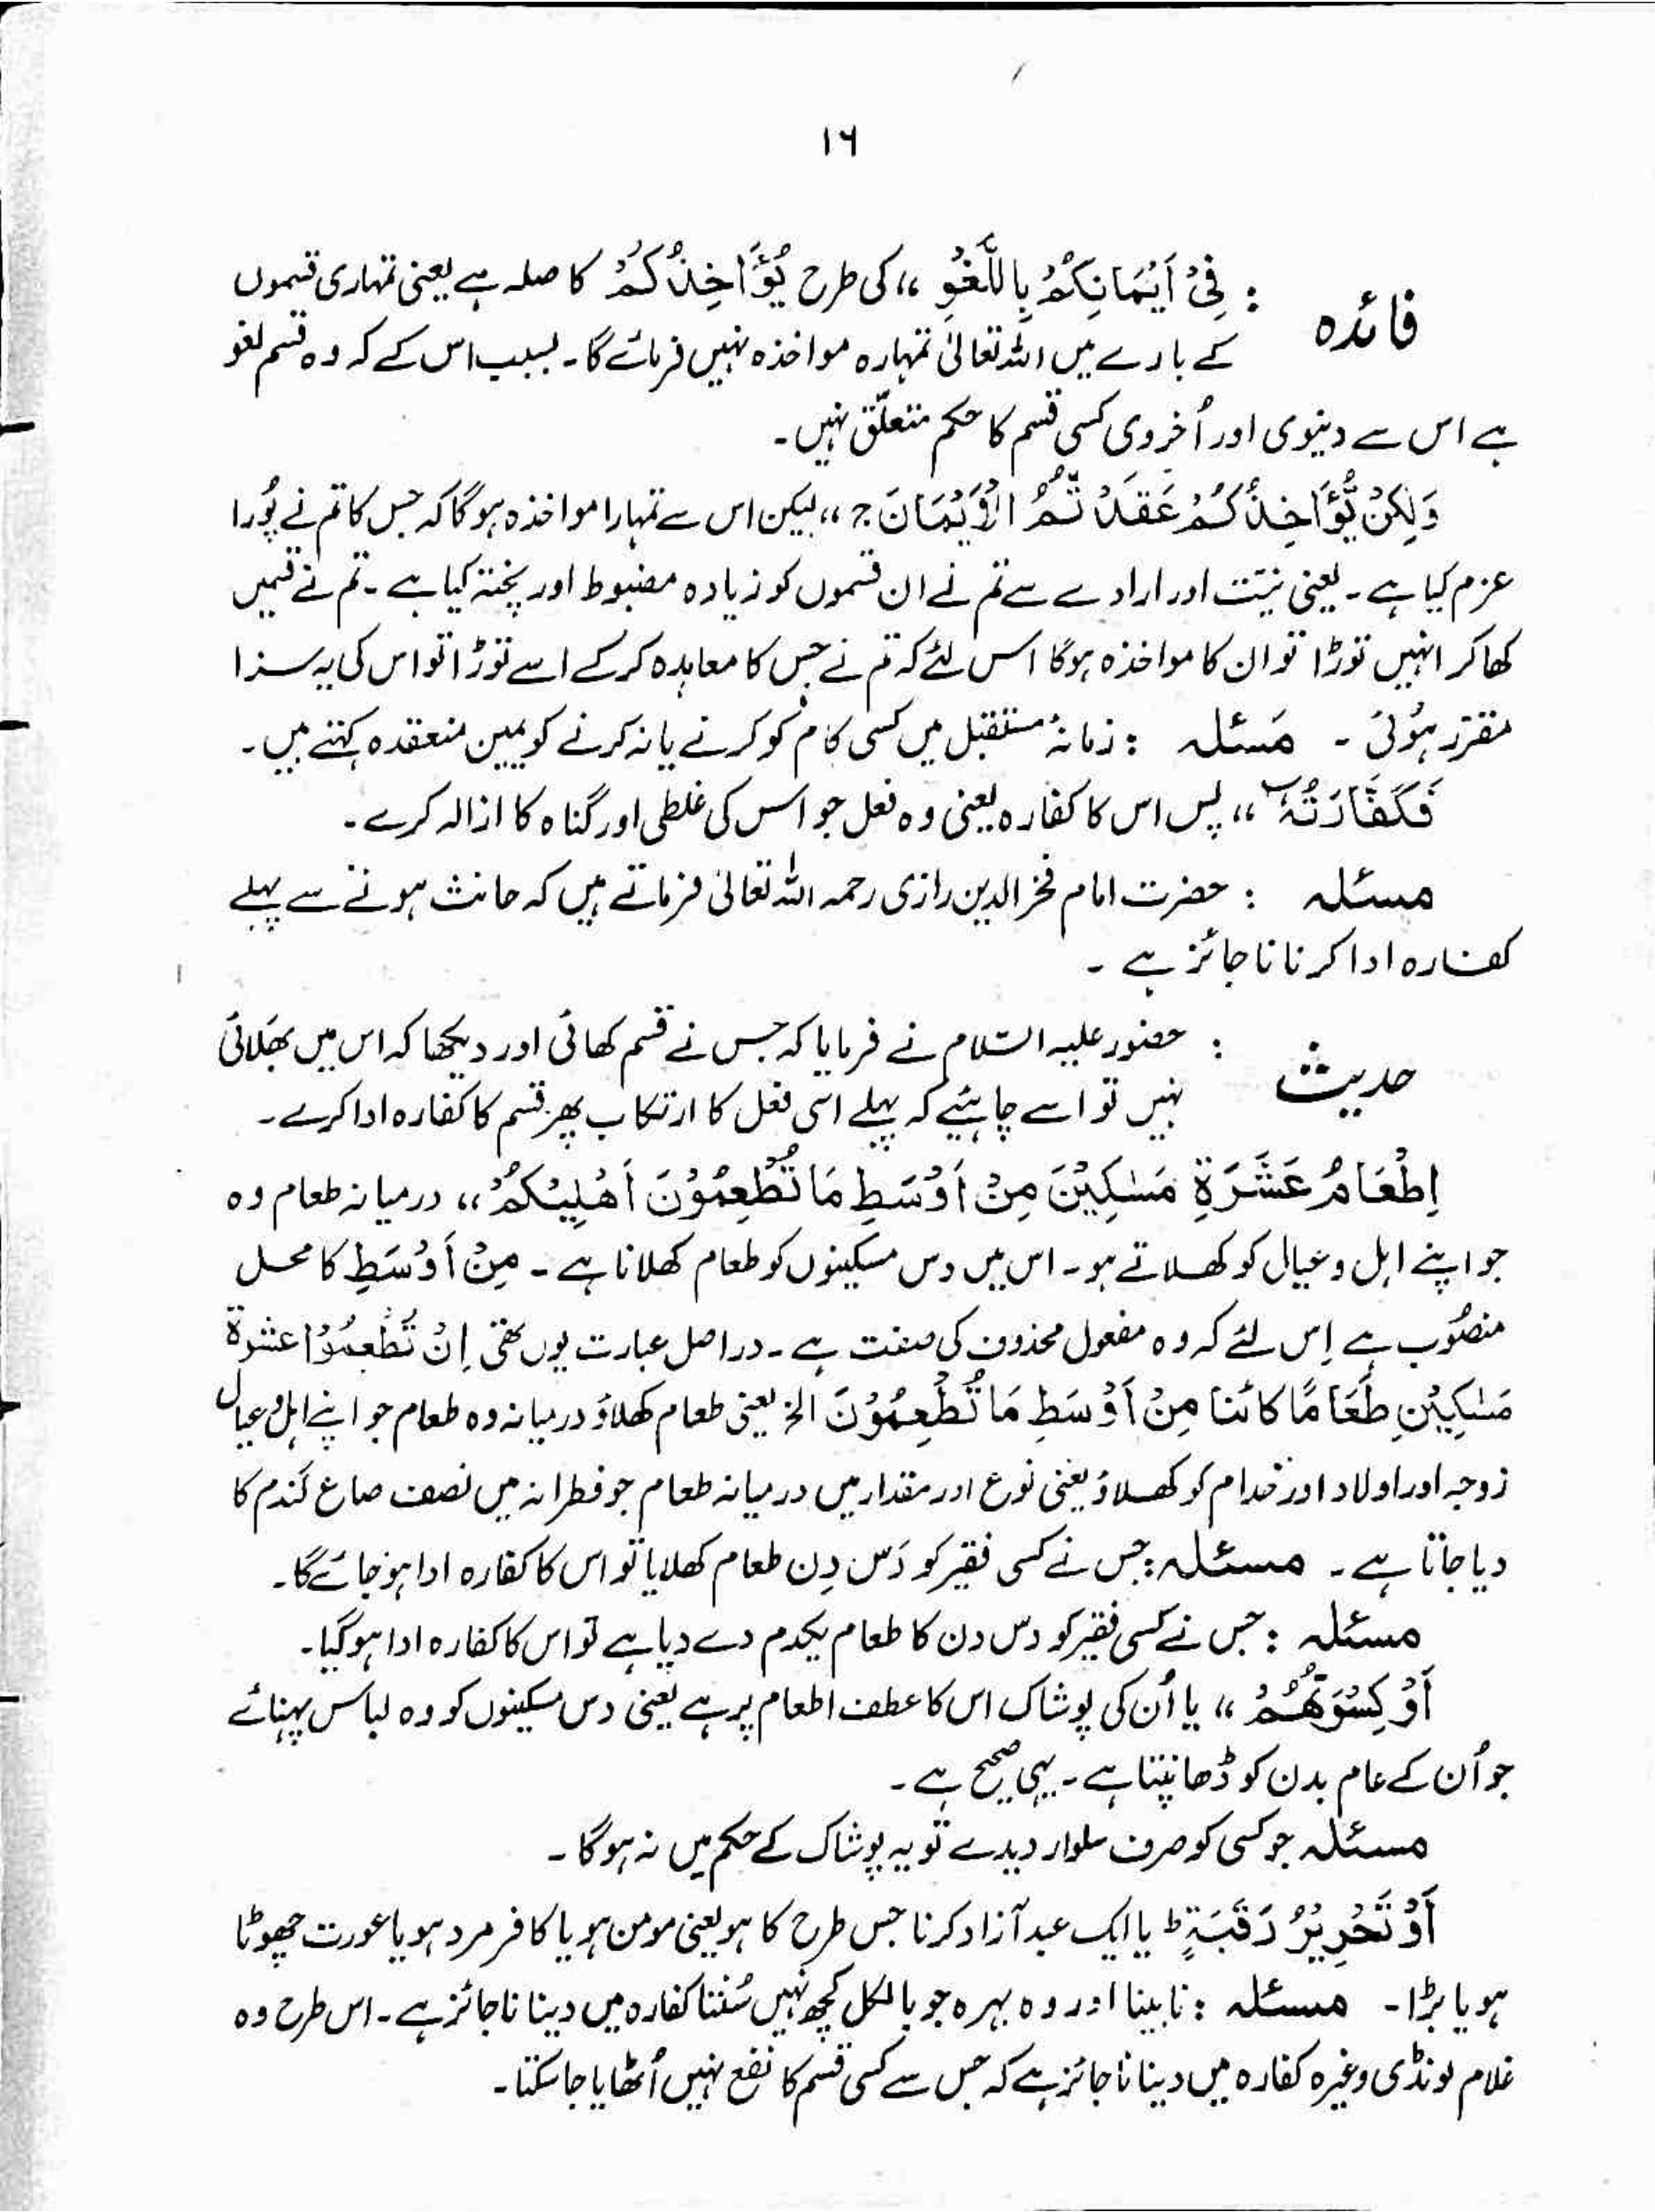 ۱۶
فائدہ : فِیْ اَیْمَانِکُمْ بِاللَّغْوِ ،، کی طرح یُؤَاخِذُکُمْ کا صلہ ہے یعنی تمہاری قسموں
کے بارے میں اللہ تعالیٰ تمہارہ مواخذہ نہیں فرمائے گا ۔ بسبب اس کے کہ وہ قسم لغو
ہے اس سے دینوی اور اُخروی کسی قسم کا حکم متعلّق نہیں ۔
وَلٰکِنْ یُّؤَاخِذُکُمْ عَقَدْتُّمُ الْاَیْمَانَ ج ،، لیکن اس سے تمہارا مواخذہ ہوگا کہ جس کا تم نے پُورا
عزم کیا ہے ۔ یعنی نیّت اور ارادے سے تم نے ان قسموں کو زیادہ مضبوط اور پختہ کیا ہے ۔ تم نے قسمیں
کھا کر انہیں توڑا تو ان کا مواخذہ ہوگا اس لئے کہ تم نے جس کا معاہدہ کرکے اسے توڑا تو اس کی یہ سزا
مقرر ہوئی ۔ مَسئلہ : زمانۂ مستقبل میں کسی کام کو کرنے یا نہ کرنے کو یمین منعقدہ کہتے ہیں ۔
فَکَفَّارَتُہٗ ،، پس اس کا کفارہ یعنی وہ فعل جو اس کی غلطی اور گناہ کا ازالہ کرے ۔
مسئلہ : حضرت امام فخر الدین رازی رحمہ اللہ تعالیٰ فرماتے ہیں کہ حانث ہونے سے پہلے
کفارہ ادا کرنا ناجائز ہے ۔
حدیث : حضور علیہ السّلام نے فرمایا کہ جس نے قسم کھائی اور دیکھا کہ اس میں بھَلائی
نہیں تو اسے چاہئیے کہ پہلے اسی فعل کا ارتکاب پھر قسم کا کفارہ ادا کرے ۔
اِطْعَامُ عَشَرَۃِ مَسٰکِیْنَ مِنْ اَوْسَطِ مَا تُطْعِمُوْنَ اَھْلِیْکُمْ ،، درمیانہ طعام وہ
جو اپنے اہل و عیال کو کھلاتے ہو ۔ اس میں دس مسکینوں کو طعام کھلانا ہے ۔ مِنْ اَوْسَطِ کا محل
منصُوب ہے اِس لئے کہ وہ مفعول محذوف کی صفت ہے ۔ دراصل عبارت یوں تھی اِنْ تُطْعِمُوْا عشرۃ
مَسٰکِیْنِ طَعَامًا کائنا مِنْ اَوْسَطِ مَا تُطْعِمُوْنَ الخ یعنی طعام کھلاؤ درمیانہ وہ طعام جو اپنے اہل و عیال
زوجہ اور اولاد اور خدام کو کھلاؤ یعنی نوع اور مقدار میں درمیانہ طعام جو فطرانہ میں نصف صاع گندم کا
دیا جاتا ہے ۔ مسئلہ : جس نے کسی فقیر کو دَس دِن طعام کھلایا تو اس کا کفارہ ادا ہوجائے گا ۔
مسئلہ : جس نے کسی فقیر کو دس دن کا طعام یکدم دے دیا ہے تو اس کا کفارہ ادا ہوگیا ۔
اَوْ کِسْوَتُھُمْ ،، یا اُن کی پوشاک اس کا عطف اطعام پر ہے یعنی دس مسکینوں کو وہ لباس پہنائے
جو اُن کے عام بدن کو ڈھانپتا ہے ۔ یہی صحیح ہے ۔
مسئلہ جو کسی کو صرف سلوار دیدے تو یہ پوشاک کے حکم میں نہ ہوگا ۔
اَوْ تَحْرِیْرُ رَقَبَۃٍ ط یا ایک عبد آزاد کرنا جس طرح کا ہو یعنی مومن ہو یا کافر مرد ہو یا عورت چھوٹا
ہو یا بڑا ۔ مسئلہ : نابینا اور وہ بہرہ جو بالکل کچھ نہیں سُنتا کفارہ میں دینا ناجائز ہے ۔ اس طرح وہ
غلام لونڈی وغیرہ کفارہ میں دینا ناجائز ہے کہ جس سے کسی قسم کا نفع نہیں اُٹھایا جاسکتا ۔